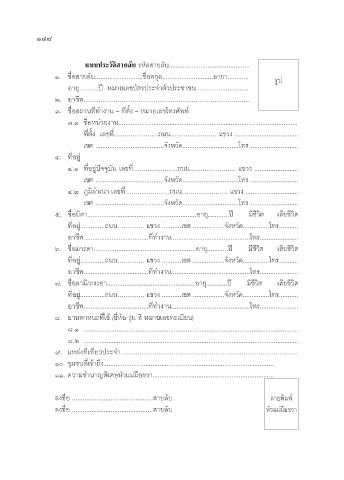 ๑๙๘
แบบประวัติสายลับ รหัสสายลับ..............................
รูป
๑. ชื่อสายลับ....................ชื่อสกุล....................ฉายา..........
อายุ........ปี หมายเลขบัตรประจำตัวประชาชน....................
๒. อาชีพ............................................................
๓. ชื่อสถานที่ทำงาน – ที่ตั้ง – หมายเลขโทรศัพท์
๓.๑ ชื่อหน่วยงาน............................................................
ที่ตั้ง เลขที่..................ถนน.................. แขวง ..................
เขต ..............................จังหวัด....................โทร ..................
๔. ที่อยู่
๔.๑ ที่อยู่ปัจจุบัน เลขที่..................ถนน.................. แขวง ..................
เขต ..............................จังหวัด....................โทร ..................
๔.๒ ภูมิลำเนา เลขที่..................ถนน.................. แขวง ..................
เขต ..............................จังหวัด....................โทร ..................
๕. ชื่อบิดา........................................อายุ..........ปี มีชีวิต เสียชีวิต
ที่อยู่..........ถนน............ แขวง ..........เขต ..............จังหวัด............โทร..........
อาชีพ..............................ที่ทำงาน..............................โทร....................
๖. ชื่อมารดา........................................อายุ..........ปี มีชีวิต เสียชีวิต
ที่อยู่..........ถนน............ แขวง ..........เขต ..............จังหวัด............โทร..........
อาชีพ..............................ที่ทำงาน..............................โทร....................
๗. ชื่อสามี/ภรรยา........................................อายุ..........ปี มีชีวิต เสียชีวิต
ที่อยู่..........ถนน............ แขวง ..........เขต ..............จังหวัด............โทร..........
อาชีพ..............................ที่ทำงาน..............................โทร....................
๘. ยานพาหนะที่ใช้ (ยี่ห้อ รุ่น สี หมายเลขทะเบียน)
๘.๑ ............................................................
๘.๒ ............................................................
๙. แหล่งที่เที่ยวประจำ............................................................
๑๐. ชุมชนที่เข้าถึง............................................................
๑๑. ความชำนาญพิเศษหัวแม่มือขวา........................................
ลงชื่อ ..............................สายลับ
ลงชื่อ ..............................สายลับ
ลายพิมพ์
หัวแม่มือขวา